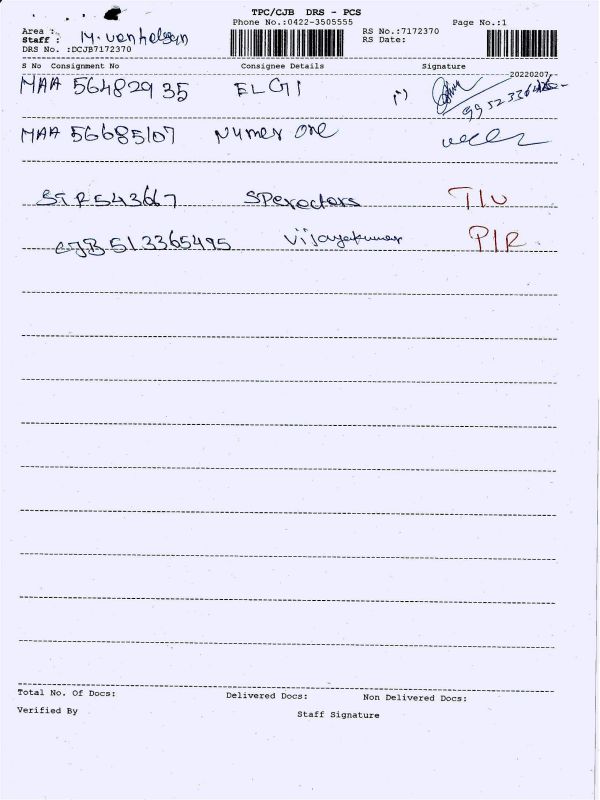 TPC/CJB DRS - PCS
Phone No.:0422-3505555 Page No.:1
Area :
Staff : M. vanhelsyn
RS No.:7172370
RS Date:
DRS No. :DCJB7172370
S No Consignment No Consignee Details Signature
20220207
MAA 56482935 ELGI
MAA 56685107 Numer one
STR543667 SPerectors T/U
CJB 513365495 Vijayakumar P/R
Total No. Of Docs: Delivered Docs: Non Delivered Docs:
Verified By Staff Signature